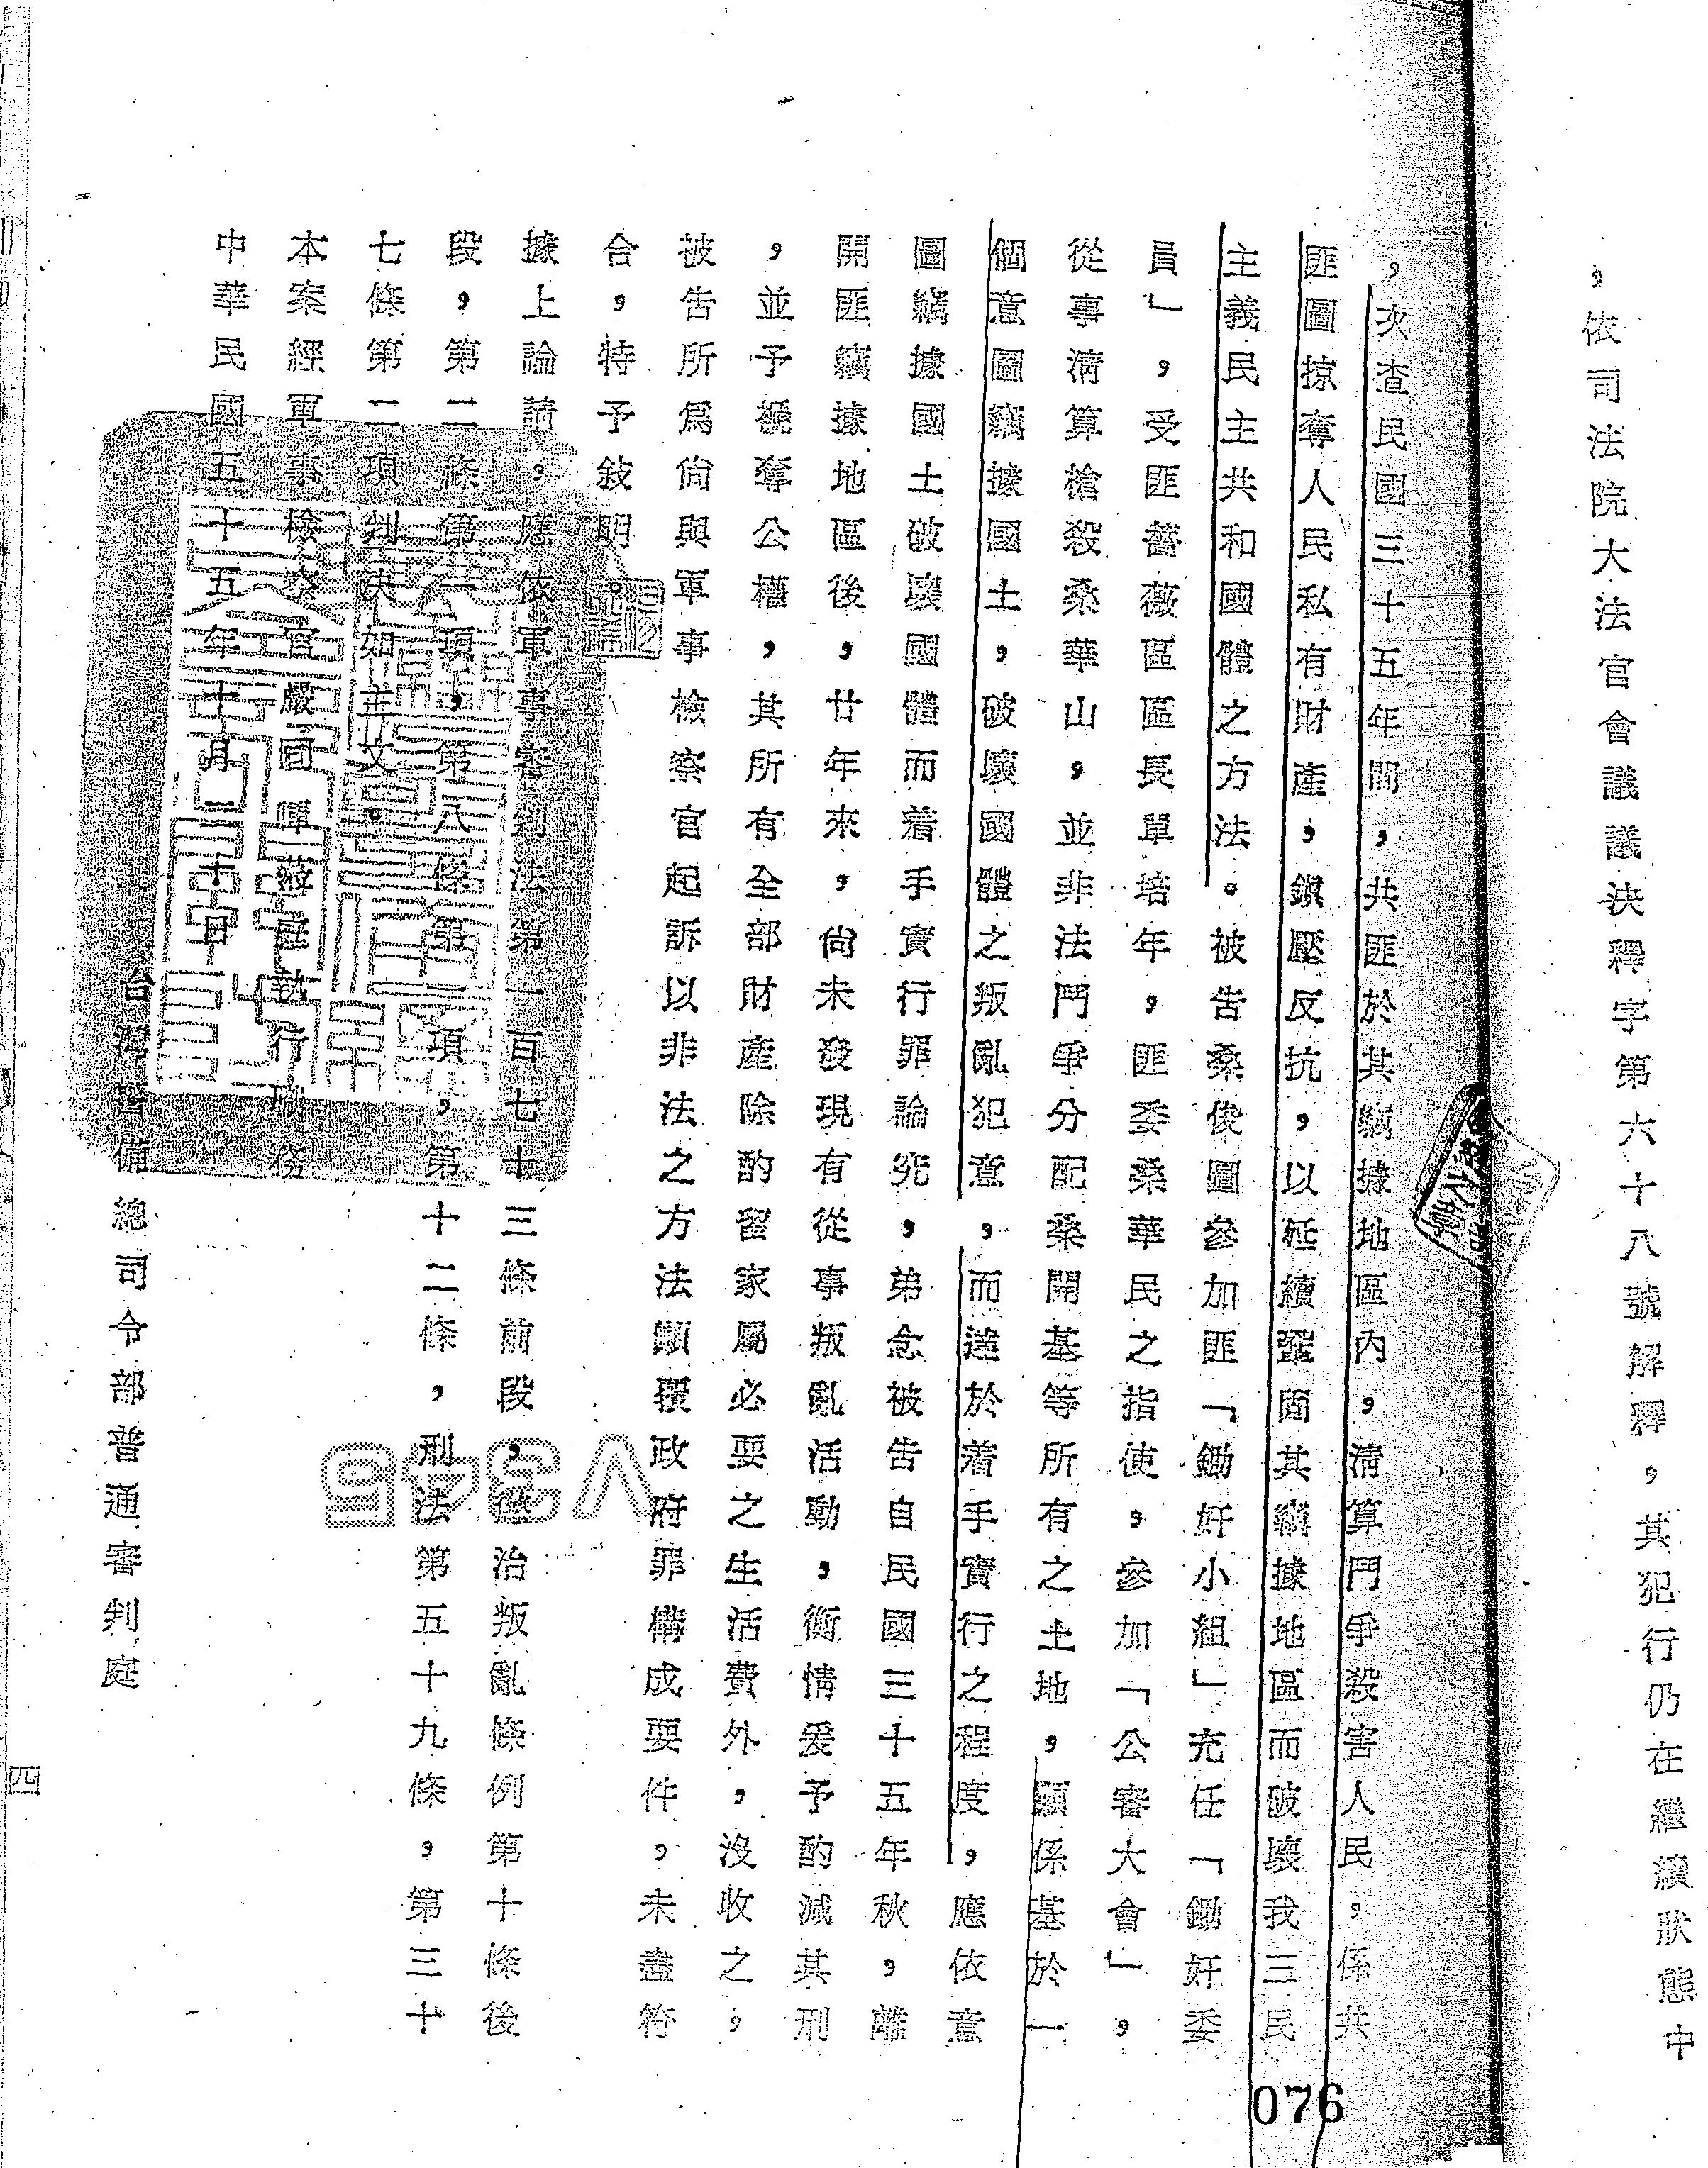 ，依司法院大法官會議議決釋字第六十八號解釋，其犯行仍在繼續狀態中
，次查民國三十五年間，共匪於其竊據地區內，清算鬥爭殺害人民，係共
匪圖掠奪人民私有財產，鎮壓反抗，以延續鞏固其竊據地區而破壞我三民
主義民主共和國體之方法。被告桑俊圖參加匪「鋤奸小組」充任「鋤奸委
員」，受匪薔薇區區長單培年，匪委桑華民之指使，參加「公審大會」，
從事清算槍殺桑華山，並非法鬥爭分配桑開基等所有之土地，顯係基於一
個意圖竊據國土，破壞國體之叛亂犯意，而達於着手實行之程度，應依意
圖竊據國土破壞國體而着手實行罪論究，弟念被告自民國三十五年秋，離
開匪竊據地區後，廿年來，尚未發現有從事叛亂活動，衡情爰予酌減其刑
，並予褫奪公權，其所有全部財產除酌留家屬必要之生活費外，沒收之，
被告所為尚與軍事檢察官起訴以非法之方法顛覆政府罪構成要件，未盡符
合，特予敍明。
據上論請，應依軍事審判法第一百七十三條前段，懲治叛亂條例第十條後
段，第二條第一項，第八條第一項，第十二條，刑法第五十九條，第三十
七條第二項判決如主文。
本案經軍事檢察官嚴囘蒞庭執行職務
中華民國五十五年十月二十日
台灣警備總司令部普通審判庭
四
076
V345